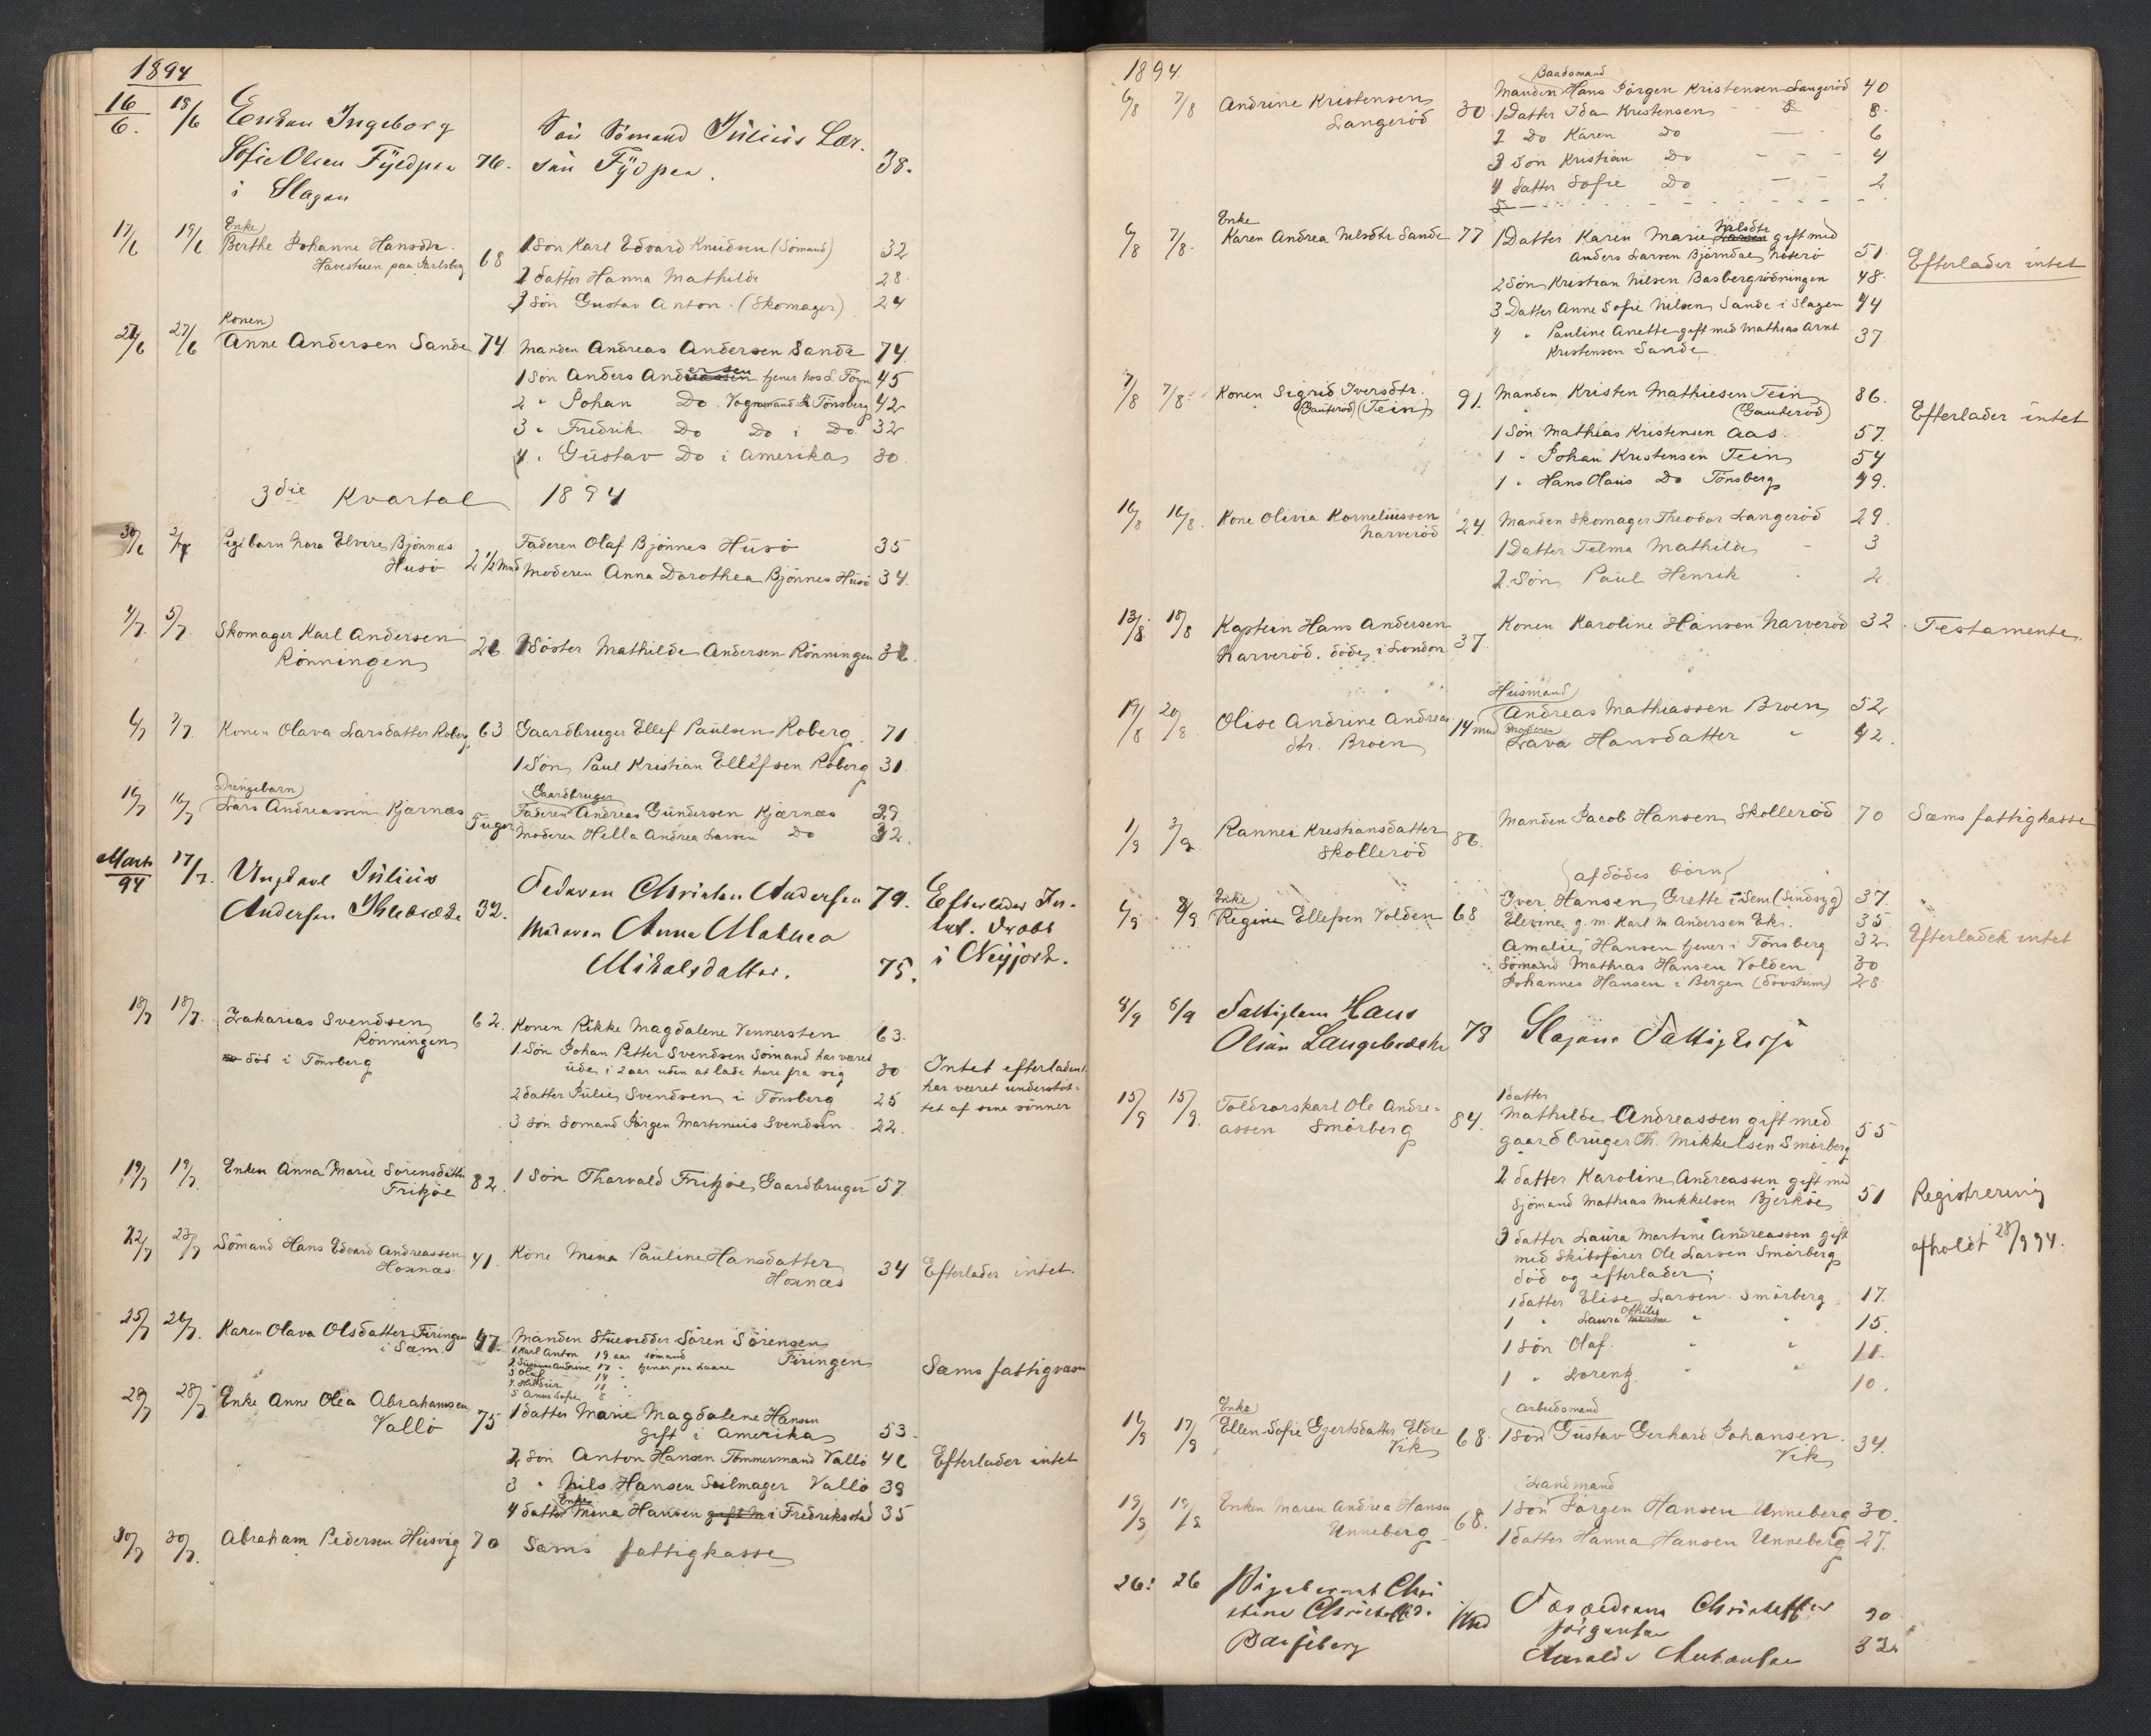 1894
16/6. 18/6 Enken Ingeborg
Sofie Olsen 76. Søn Sömand Julius Lar-
i Slagen 38.
17/6 19/6 Enke
Berthe Johanne Hansdtr. 68 1 Søn Karl Edvard Knudsen (Sömand) 32
Havestuen paa Jarlsberg
2 datter Hanna Mathilde 28.
3 Søn Gustav Anton. (Skomager) 24
27/6 Konen
Anne Andersen Sande 74 Manden Andreas Andersen Sande 74.
1 Søn Anders Andersen tjener hos 45
2 " Johan Do. Vognmand i Tönsberg 42
3 " Fredrik Do Do i Do. 32
4 " Gustav Do i Amerika 30
3die Kvartal 1894
30/6 2/7 Pigebarn Nora Elvire Bjönnes
Husö 2 1/2 Mnd Faderen Olaf Bjönnes Husö 35
Moderen Anna Dorothea Bjönnes Husö 34.
4/7. 5/7. Skomager Karl Andersen
Rönningen 26. 1 Söster Mathilde Andersen Rönningen
6/7 7/7. Konen Olava Larsdatter Roberg 63 Gaardbruger Ellef Paulsen Roberg. 71
1 Søn Paul Kristian Ellefsen Roberg 31
16/7 16/7 Drengebarn
Lars Andreassen Kjærnæs Gaardbruger
Faderen Andreas Gundersen Kjærnæs 39.
Moderen Hella Andrea Larsen Do 32.
Marts
94 17/7. Ungkarl Julius
Andersen 32. Faderen Christen Andersen 79.
Moderen Anna Mathea
Mikalsdatter. 75.
Efterlader
i Neyjork.
18/7 18/7. Zakarias Svendsen 62.
Rönningen
död i Tönsberg
Konen Rikke Magdalene Vennersten 63.
1 Søn Johan Petter Svendsen Sömand har været
ude i 2 aar uden at lade høre fra sig 30
2 datter Julie Svendsen i Tönsberg 25
3 Søn Sömand Jörgen Martinius Svendsen 22.
Intet efterladent.
har været understöt-
tet af sine sönner
19/7 19/7. Enken Anna Marie Sörensdatter
Fritzöe 82. 1 Søn Tharvald Fritzöe, Gaardbruger 57
22/7 23/7 Sömand Hans Edvard Andreassen
Hosnæs. 41. Kone Mina Pauline Hansdatter
Hosnæs 34 Efterlader intet.
25/7 26/7. Karen Olava Olsdatter Firingen
i Sæm. 47. Manden Sören Sörensen
Firingen
1 Karl Anton 19 aar sömand
3 Olaf 14
5 Anna Sofie 8
Sæms fattigvæsen
28/7 28/7 Enke Anne Olea Abrahamsen
Vallö 75 1 datter Marie Magdalene Hansen
gift i Amerika 53.
2 Søn Anton Hansen Tömmermand Vallö 46 Efterlader intet
3 " Nils Hansen Seilmager Vallö 39
4 datter Enke Mina Hansen i Fredriksstad 35
30/7 30/7. Abraham Pedersen Husvig 70 Sæms fattigkasse
1894.
6/8 7/8 Andrine Kristensen
Langeröd 30. Baadsmand
Manden Hans Jörgen Kristensen Langeröd 40
1 Datter Ida Kristensen 8.
2 Do Karen Do 6
3 Søn Kristian Do 4
4 datter Sofie Do 2
5
6/8 7/8. Enke
Karen Andrea Nelsdtr Sande 77 1 Datter Karen Marie Nilsdtr gift med
Anders Larsen Björndal, Nöterö 51.
2 Søn Kristian Nilsen Basbergrödningen 48.
3 Datter Anne Sofie Nilsen, Sande i Slagen 44
4 " Pauline Anette gift med Mathias Arnt
Kristensen Sande. 37
Efterlader intet
7/8 7/8. Konen Sigrid Iversdtr.
(Gauteröd) (Tein) 91. Manden Kristen Mathiesen Tein 86.
(Gauteröd)
1 Søn Mathias Kristensen Aas. 57.
1 " Johan Kristensen Tein 54
1 " Hans Olaus Do Tönsberg 49.
Efterlader intet
16/8 16/8. Kone Olivia Korneliussen
Narveröd 24. Manden Skomager Theodor Langeröd 29.
1 Datter Telma Mathilde 3
2 Søn Paul Henrik 2.
13/8 18/8 Kaptein Hans Andersen
Narveröd. döde i London 37. Konen Karoline Hansen Narveröd 32. Testamente.
19/8 20/8 Olise Andrine Andreas
dtr. Broen 14 mnd Husmand
Andreas Mathiassen Broen 52
Moderen
Lava Hansdatter " 42.
1/9 3/9 Rannei Kristiansdatter
Skolleröd 86. Manden Jacob Hansen Skolleröd 70 Sæms fattigkasse
(afdödes börn)
6/9 8/9 Enke
Regine Ellefsen Volden 68 Iver Hansen, Grette i Sem (Sindsyg) 37.
Elevine g. m. Karl M Andersen Ek. 35
Amalie Hansen tjener i Tönsberg 32.
Sömand Mathias Hansen Volden 30
Johannes Hansen i Bergen (dövstum) 28.
Efterladt intet
8/9 8/9 Fattiglem Hans
Olsen 78 Slagens Fattigkasse
15/9 15/9. Toldrorskarl Ole Andre-
assen Smörberg 84. 1 datter
Mathilde Andreassen gift med
gaardbruger Th. Mikkelsen Smörberg 55
2 datter Karoline Andreassen gift med
Sjömand Mathias Mikkelsen Bjerköe 51
3 datter Laura Martine Andreassen gift
med Skibsförer Ole Larsen Smörberg
död og efterlader;
1 datter Elise Larsen. Smörberg 17.
1 " Laura Othilie " " 15.
1 Søn Olaf. " " 11.
1 " Lorentz. " " 10.
Registrering
afholdt 28/9 94.
16/9 17/9 Enke
Ellen Sofie Gjertsdatter Eldre
Vik 68. Arbeidsmand
1 Søn Gustav Gerhard Johansen.
Vik 34.
19/9 19/9 Enken Maren Andrea Hansen
Unneberg 68. Landmand
1 Søn Jörgen Hansen Unneberg 30.
1 datter Hanna Hansen Unneberg 27.
26: 26 Pigebarnet Chri
stine
Forældrene
Jörgensen 30
32